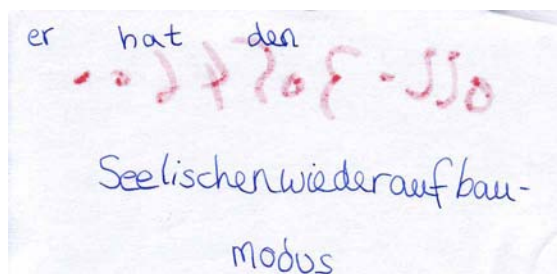 er hat den
Seelischenwiederaufbau-
modus